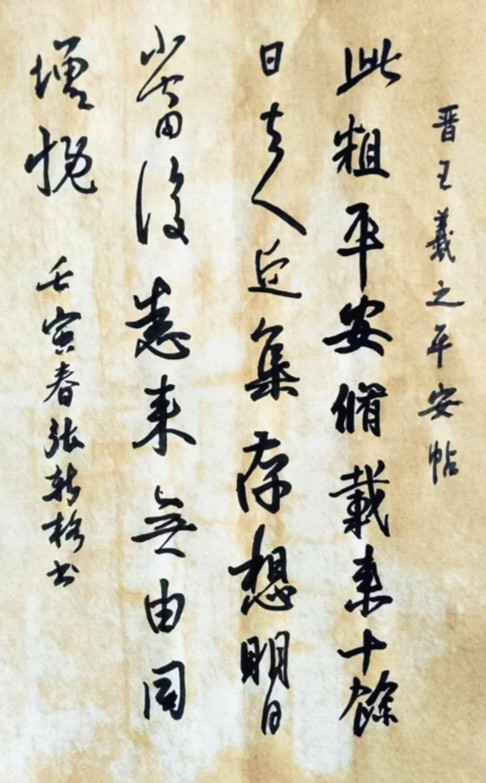 晋王羲之平安帖
此粗平安脩載来十餘
日人近集存想明日
當復悉来無由同
增慨
壬寅春张格书